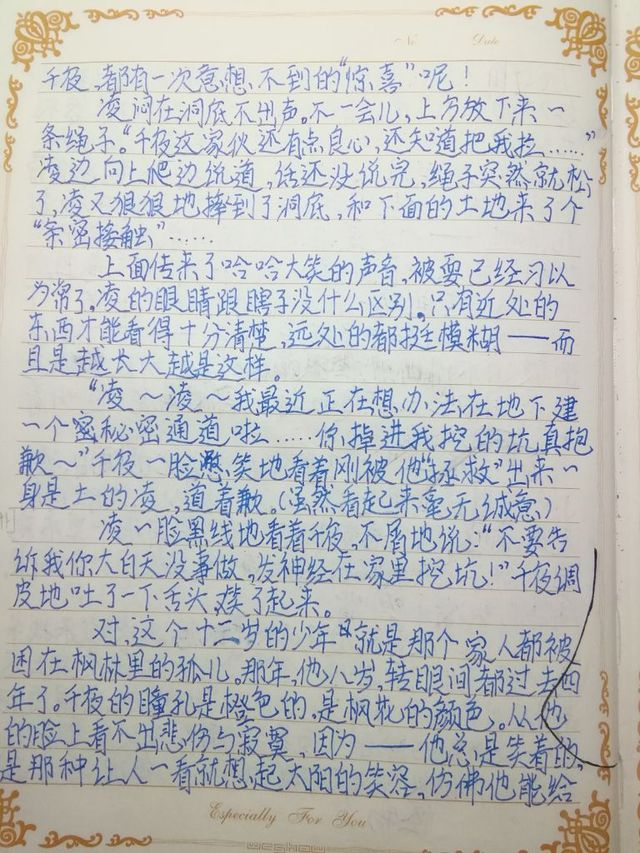 No Date
千夜，都有一次意想不到的“惊喜”呢！
凌闷在洞底不出声。不一会儿，上方放下来一
条绳子。“千夜这家伙还有点良心，还知道把我拉……”
凌边向上爬边说道，话还没说完，绳子突然就松
了，凌又狠狠地摔到了洞底，和下面的土地来了个
“亲密接触”……
上面传来了哈哈大笑的声音，被耍已经习以
为常了，凌的眼睛跟瞎子没什么区别。只有近处的
东西才能看得十分清楚，远处的都挺模糊——而
且是越长大越是这样。
“凌～凌～我最近正在想办法在地下建
一个密秘密通道啦……你掉进我挖的坑真抱
歉～”千夜一脸憋笑地看着刚被他“拯救”出来一
身是土的凌，道着歉。（虽然看起来毫无诚意）
凌一脸黑线地看着千夜，不屑地说：“不要告
诉我你大白天没事做，发神经在家里挖坑！”千夜调
皮地吐了一下舌头，笑了起来。
对，这个十二岁的少年就是那个家人都被
困在枫林里的孤儿。那年，他八岁，转眼间都过去四
年了。千夜的瞳孔是橙色的，是枫花的颜色。从他
的脸上看不出悲伤与寂寞，因为——他总是笑着的，
是那种让人一看就想起太阳的笑容，仿佛他能给
Especially For You